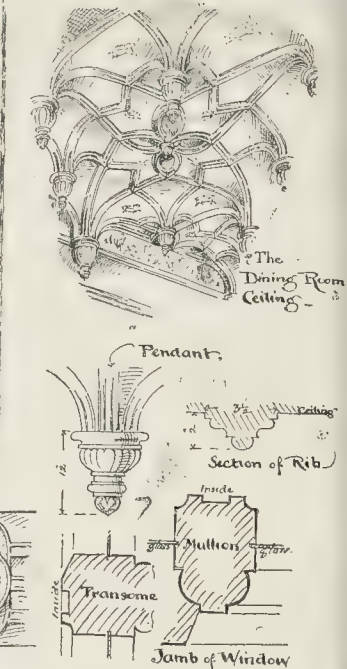 The
Dining Room
Ceiling
Pendant
3½
Ceiling
2
12
Section of Rib
Inside
glass
Mullion
glass
Inside
Transome
Jamb of Window